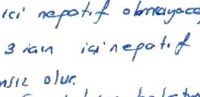 içi negatif olmayaca
3 için içi negatif
nsız olur.